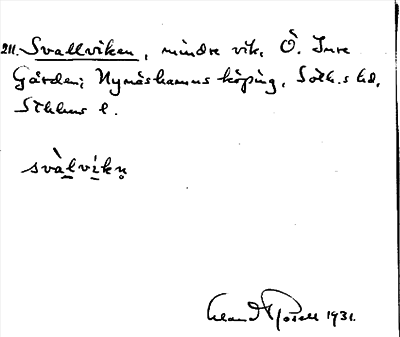 211. Svallviken, mindre vik, Ö. Inre
Gården; Nynäshamns köping, Soth.s hd,
Sthlms l.
svàlvíkn̥
1931.